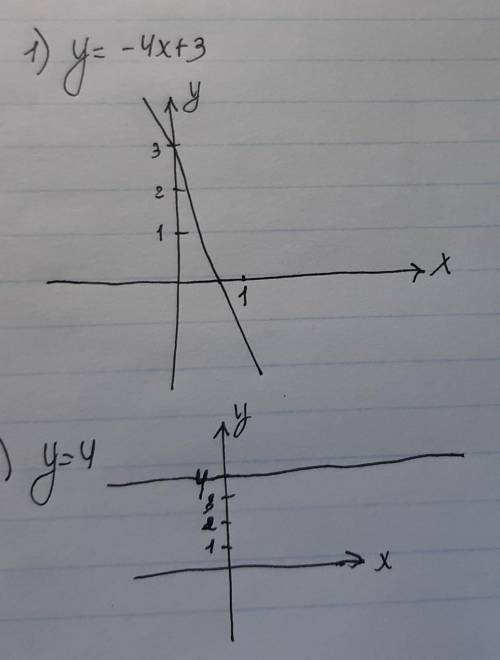 1) y = -4x+3
y
3
2
1
1
x
) y=4
y
4
3
2
1
x